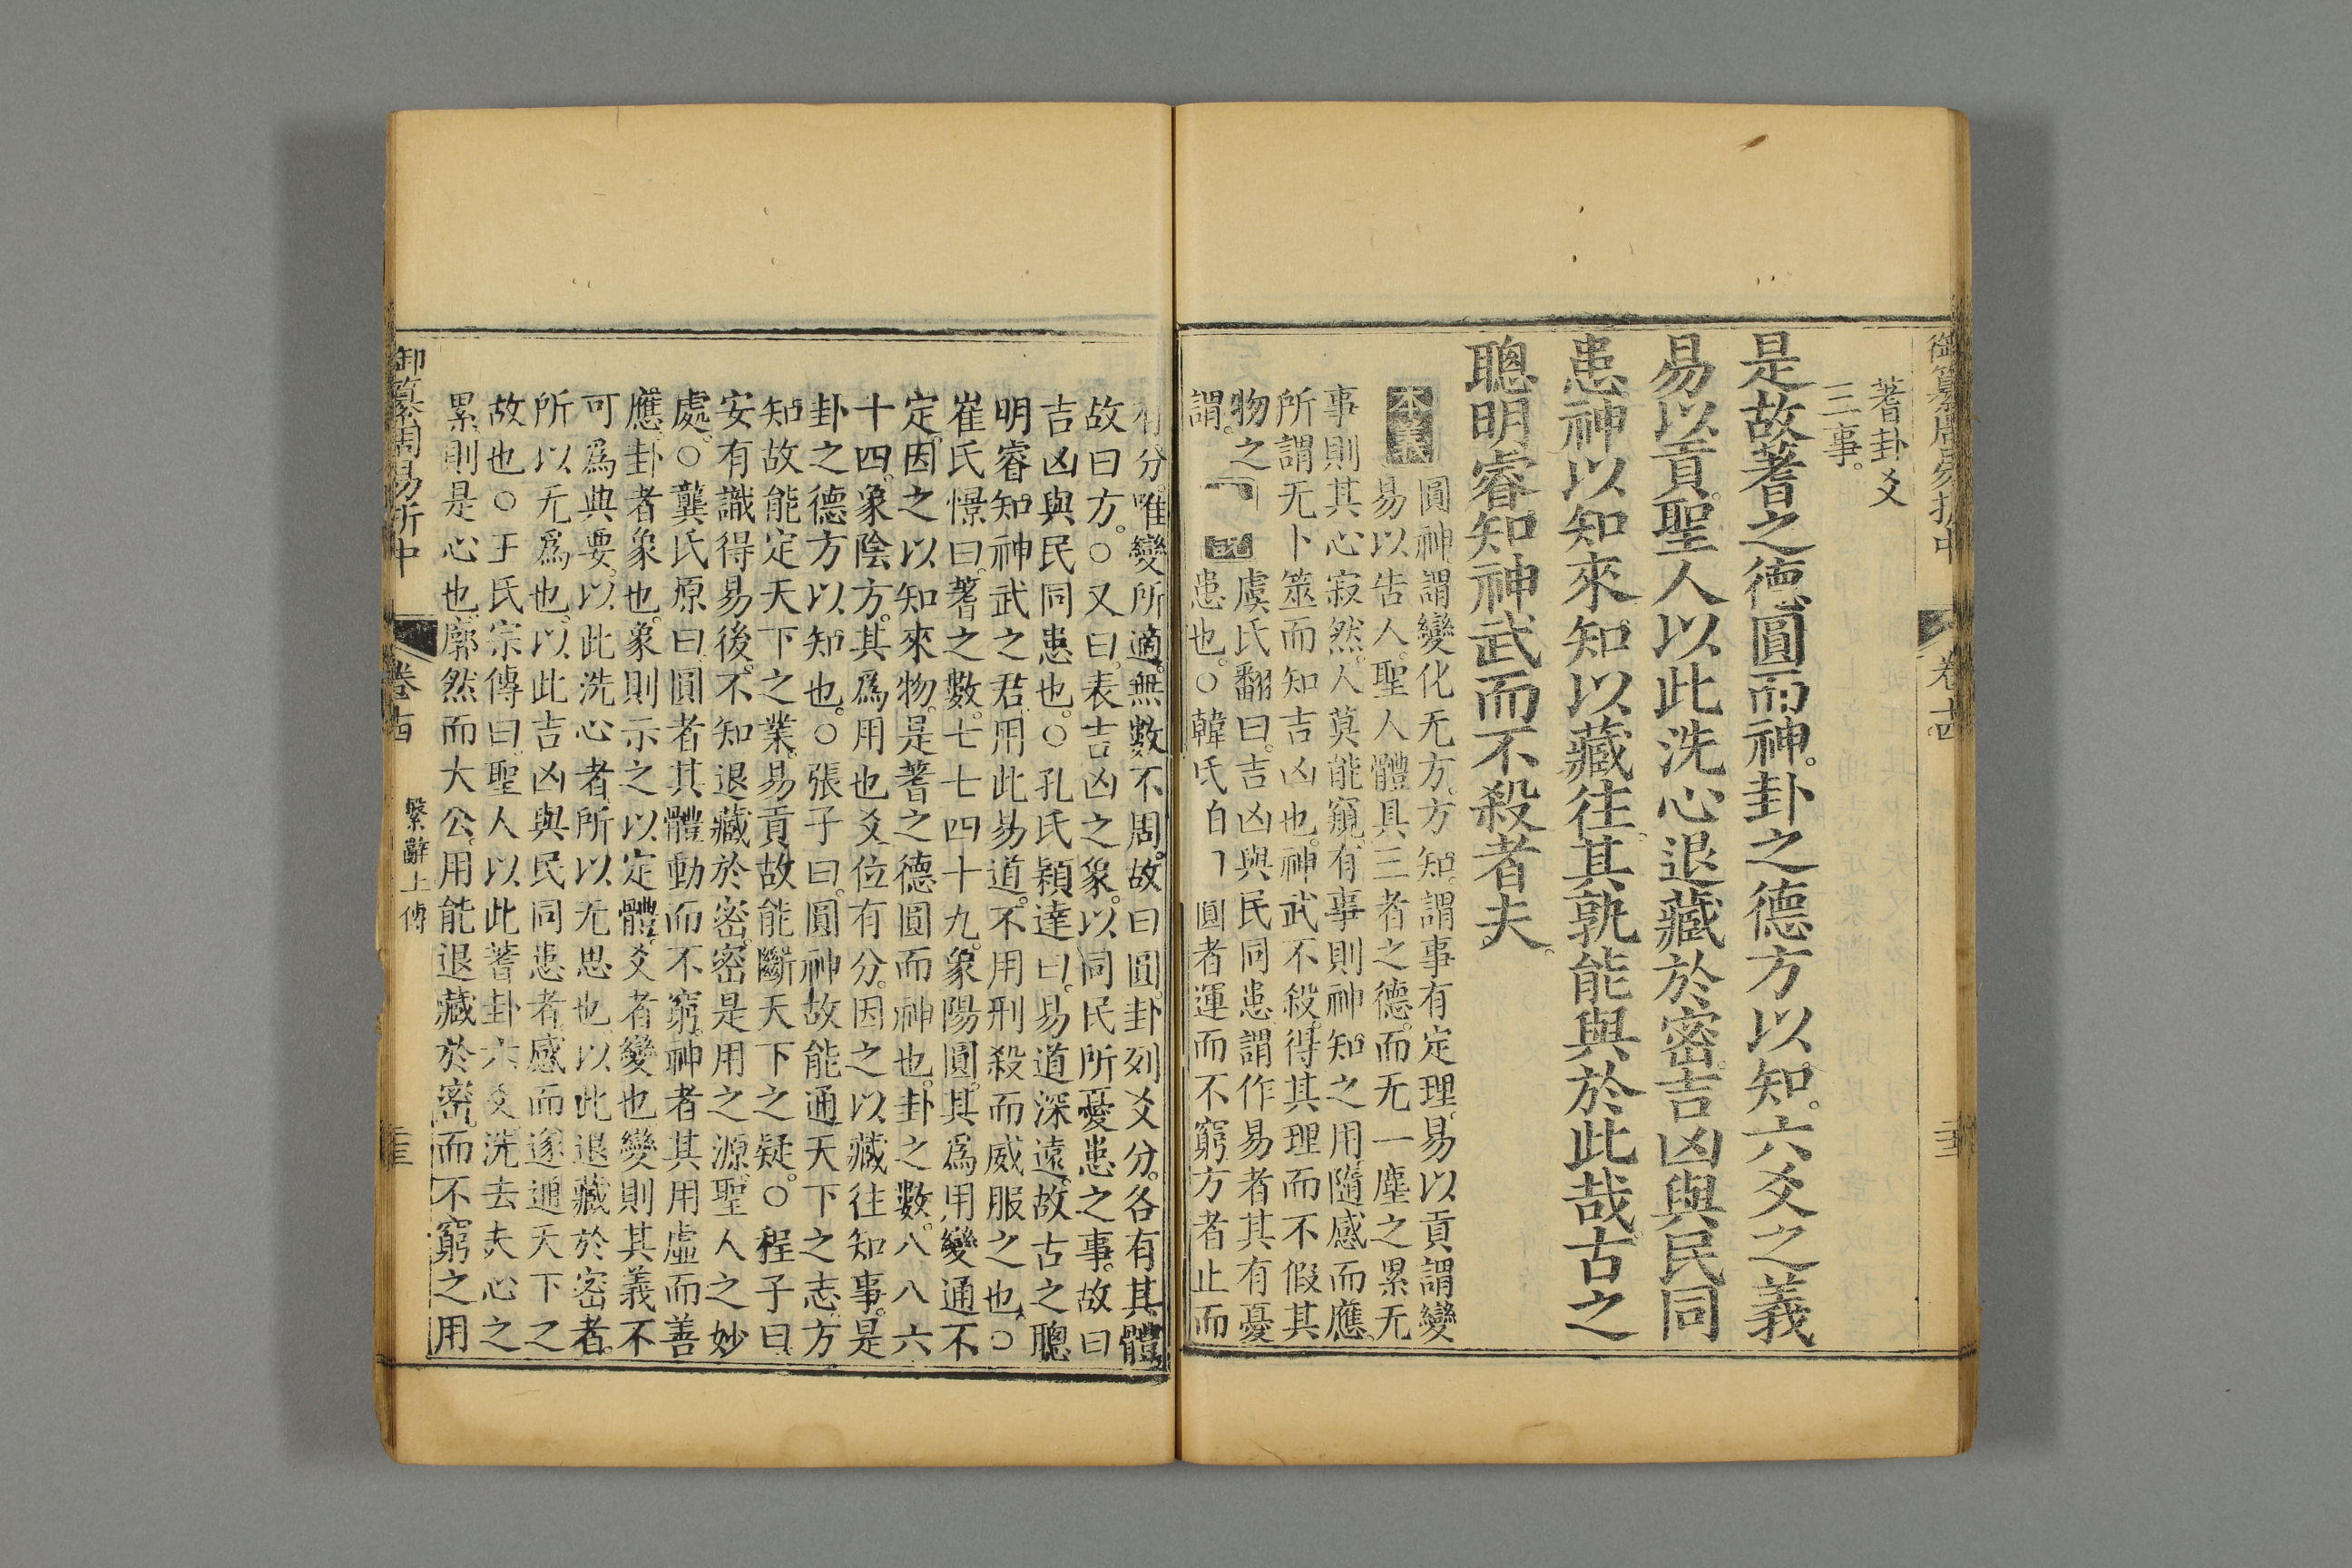 御纂周易折中 卷十四
蓍卦爻
三事。
是故蓍之德圓而神。卦之德方以知。六爻之義
易以貢。聖人以此洗心退藏於密。吉凶與民同
患。神以知來。知以藏往。其孰能與於此哉。古之
聰明睿知神武而不殺者夫。
本義 圓神謂變化无方。方知。謂事有定理。易以貢謂變
易以告人。聖人體具三者之德。而无一塵之累。无
事則其心寂然。人莫能窺。有事則神知之用隨感而應。
所謂无卜筮而知吉凶也。神武不殺。得其理而不假其
物之 虞氏翻曰。吉凶與民同患。謂作易者其有憂
謂。 患也。○韓氏 圓者運而不窮方者止而
有分。唯變所適。無數不周。故曰圓。卦列爻分。各有其體。
故曰方。○又曰。表吉凶之象。以同民所憂患之事。故曰
吉凶與民同患也。○孔氏穎達曰。易道深遠。故古之聰
明睿知。神武之君。用此易道。不用刑殺而威服之也。○
崔氏憬曰。蓍之數。七七四十九。象陽圓。其爲用變通不
定。因之以知來物。是蓍之德圓而神也。卦之數。八八六
十四。象陰方。其爲用也爻位有分。因之以藏往知事。是
卦之德方以知也。○張子曰。圓神故能通天下之志。方
知故能定天下之業。易貢故能斷天下之疑。○程子曰。
安有識得易後。不知退藏於密。密是用之源。聖人之妙
處。○龔氏原曰。圓者其體動而不窮。神者其用虛而善
應。卦者象也。象則示之以定體。爻者變也。變則其義不
可爲典要。以此洗心者所以无思也。以此退藏於密者。
所以无爲也。以此吉凶與民同患者。感而遂通天下之
故也。○王氏宗傳曰。聖人以此蓍卦六爻。洗去夫心之
累。則是心也。廓然而大公。用能退藏於密。而不窮之用
御纂周易折中 卷十四 繫辭上傳